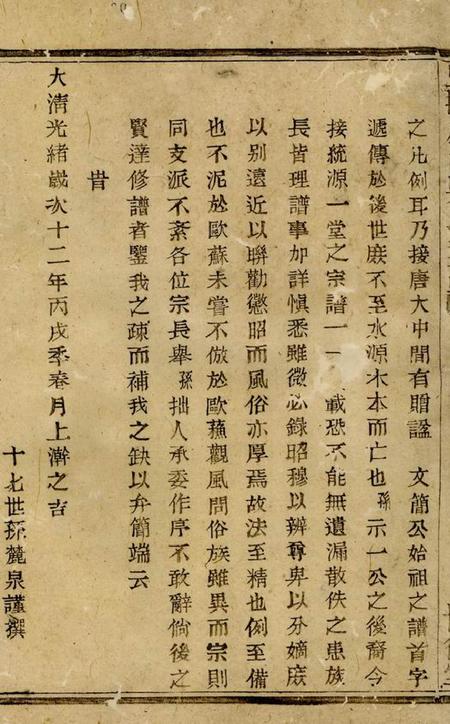 之凡例耳乃接唐大中間有贈諡 文簡公始祖之譜首字
遞傳於後世庶不至水源木本而亡也孫示一公之後裔今
接統源一堂之宗譜一一 載恐不能無遺漏散佚之患族
長皆理譜事加詳慎悉雖微必錄昭穆以辨尊卑以分嫡庶
以别遠近以聯勸懲昭而風俗亦厚焉故法至精也例至備
也不泥於歐蘇未嘗不倣於歐蘓觀風問俗族雖異而宗則
同支派不紊各位宗長舉孫拙人承委作序不敢辭倘後之
賢達修譜者鑒我之疎而補我之缺以弁簡端云
旹
大清光緒歲次十二年丙戌季春月上澣之吉
十七世孫麓泉謹撰